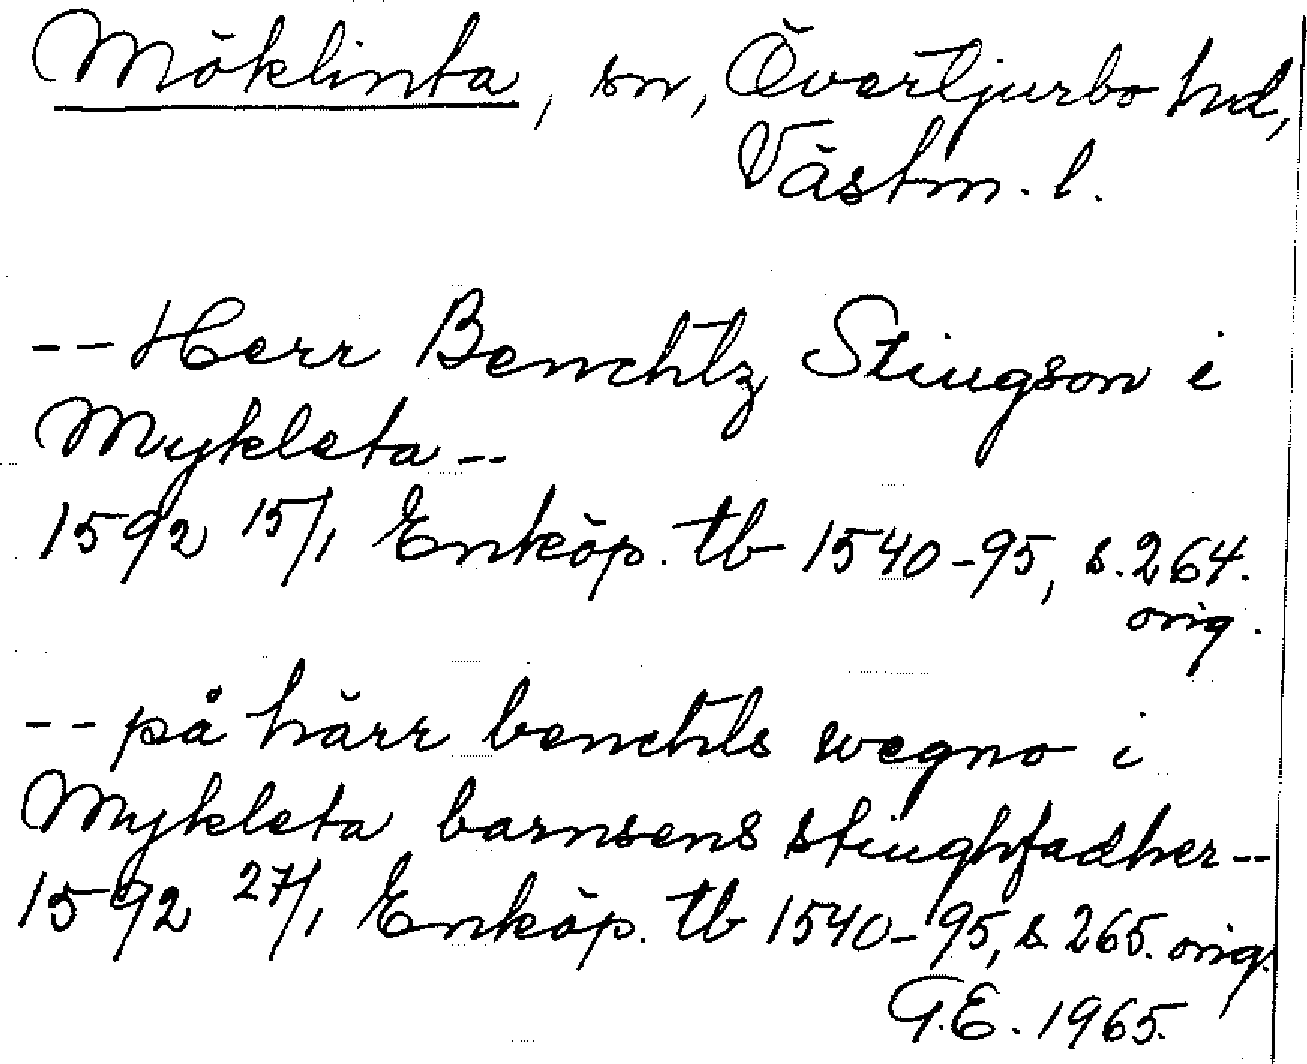 Möklinta, sn, Övertjurbo hd,
Västm. l.
-- Herr Benchtz Stiugson i
Mykleta --
1592 15/1 Enköp. tb 1540-95, s. 264.
orig.
-- på härr benchts wegno i
Mykleta barnsens stiughfadher --
1592 27/1 Enköp. tb 1540-95, s. 265. orig.
G.E. 1965.